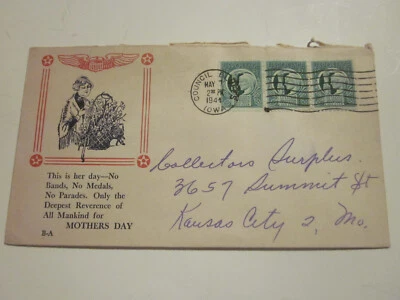 COUNCIL
MAY
2 PM
194
IOWA
This is her day—No
Bands, No Medals,
No Parades. Only the
Deepest Reverence of
All Mankind for
MOTHERS DAY
B-A
Collectors Surplus.
3657 Summit St
Kansas City 2, Mo.